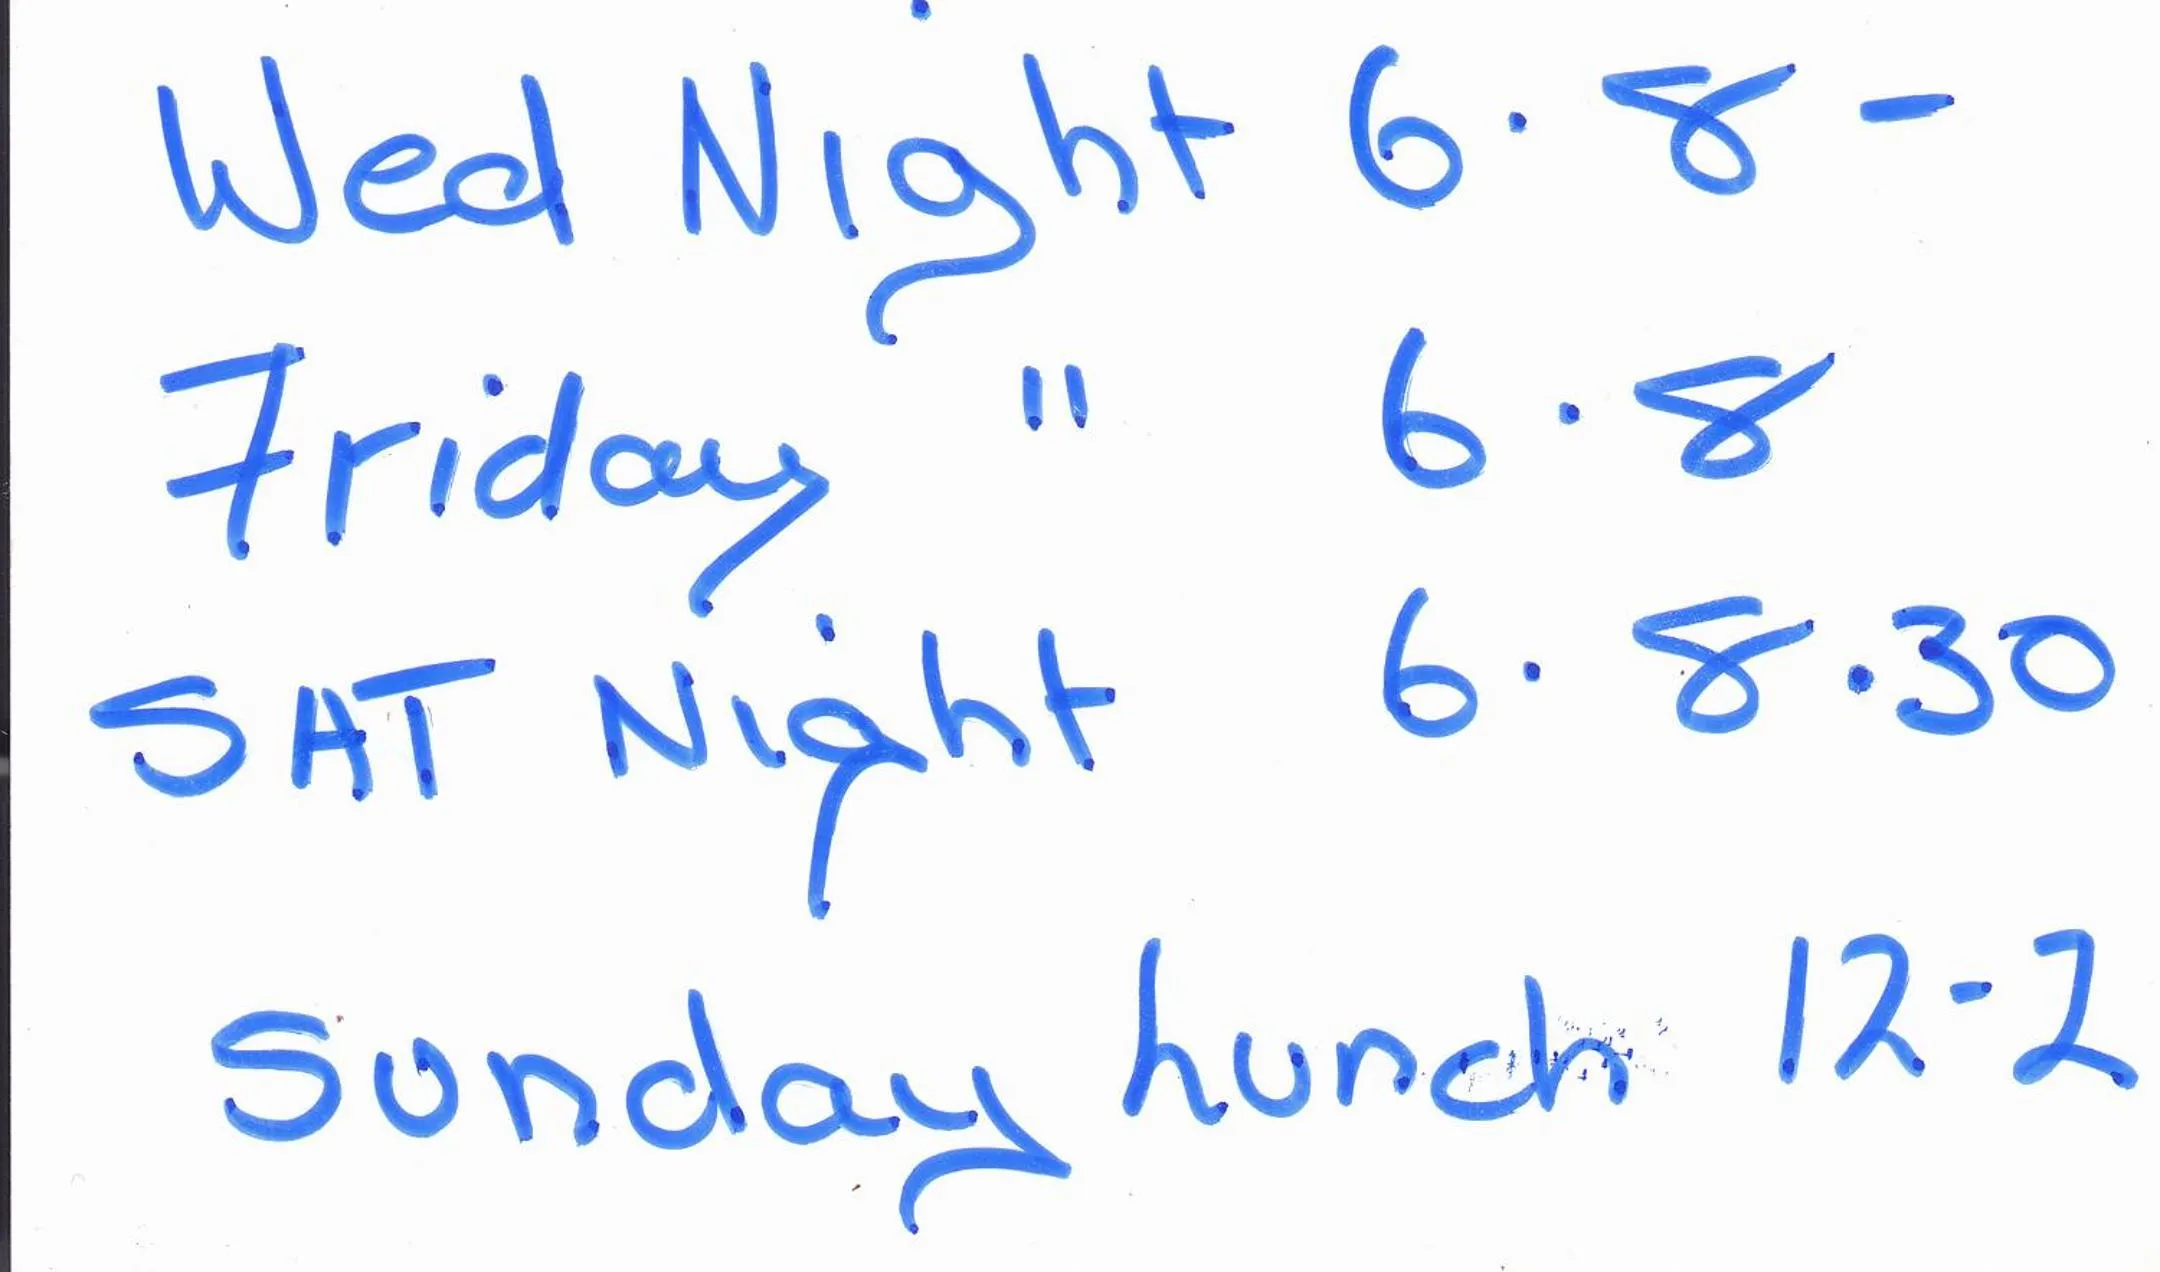 Wed Night 6.8-
Friday " 6.8
SAT Night 6.8.30
Sunday hunch 12-2